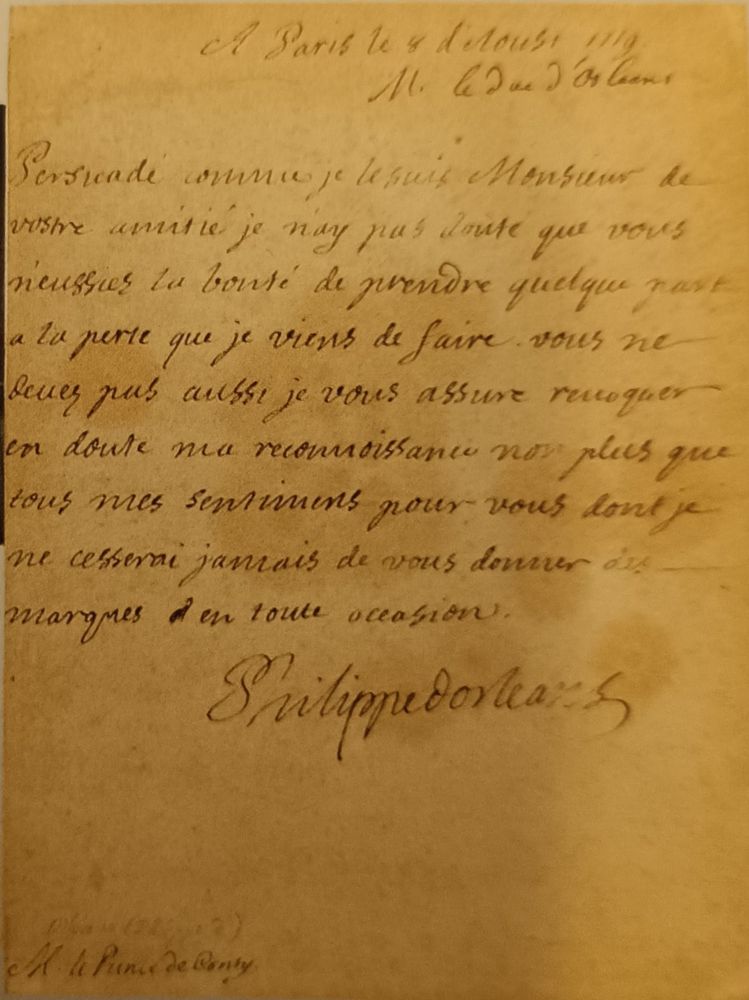 A Paris le 8 d'Aoust 1719
M. le Duc d'Orleans
Persuadé comme je le suis Monsieur de
vostre amitié je n'ay pas douté que vous
n'eussies la bonté de prendre quelque part
a la perte que je viens de faire. vous ne
deues pas aussi je vous assure reuoquer
en doute ma reconnoissance non plus que
tous mes sentimens pour vous dont je
ne cesserai jamais de vous donner des
marques en toute occasion.
Philippe dorleans
M. le Prince de Conty